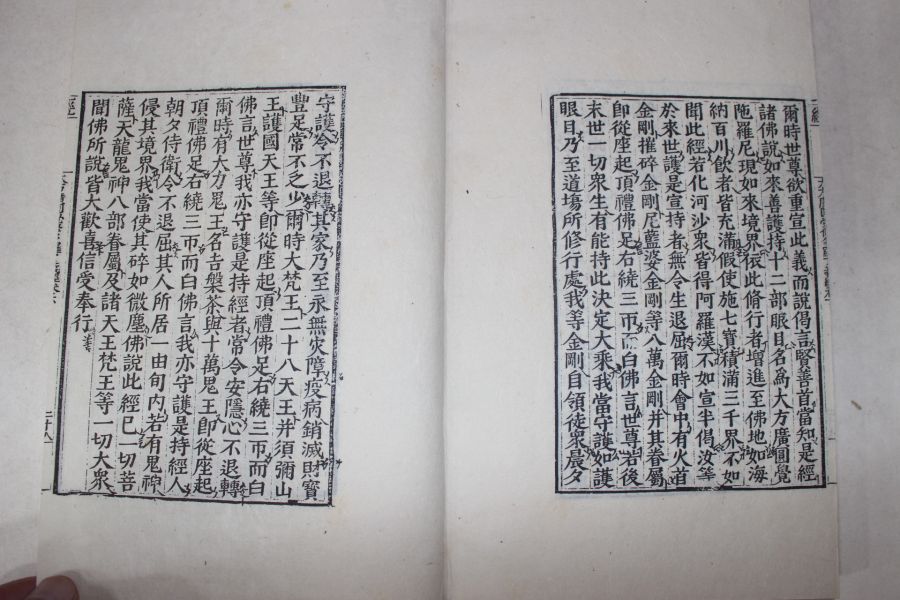 爾時世尊欲重宣此義而說偈言賢善首當知是經
諸佛說如來善護持十二部眼目名爲大方廣圓覺
陁羅尼現如來境界依此修行者增進至佛地如海
納百川飮者皆充滿假使施七寶積滿三千界不如
聞此經若化河沙衆皆得阿羅漢不如宣半偈汝等
於來世護是宣持者無令生退屈爾時會中有火首
金剛摧碎金剛尼藍婆金剛等八萬金剛并其眷屬
卽從座起頂禮佛足右繞三帀而白佛言世尊若後
末世一切衆生有能持此决定大乘我當守護如護
眼目乃至道場所修行處我等金剛自領徒衆晨夕
守護令不退轉其家乃至永無灾障疫病銷滅財寶
豐足常不乏少爾時大梵王二十八天王并須彌山
王護國天王等卽從座起頂禮佛足右繞三帀而白
佛言世尊我亦守護是持經者常令安隱心不退轉
爾時有大力鬼王名吉槃茶與十萬鬼王卽從座起
頂禮佛足右繞三帀而白佛言我亦守護是持經人
朝夕侍衛令不退屈其人所居一由旬內若有鬼神
侵其境界我當使其碎如微塵佛說此經已一切菩
薩天龍鬼神八部眷屬及諸天王梵王等一切大衆
聞佛所說皆大歡喜信受奉行
二十八